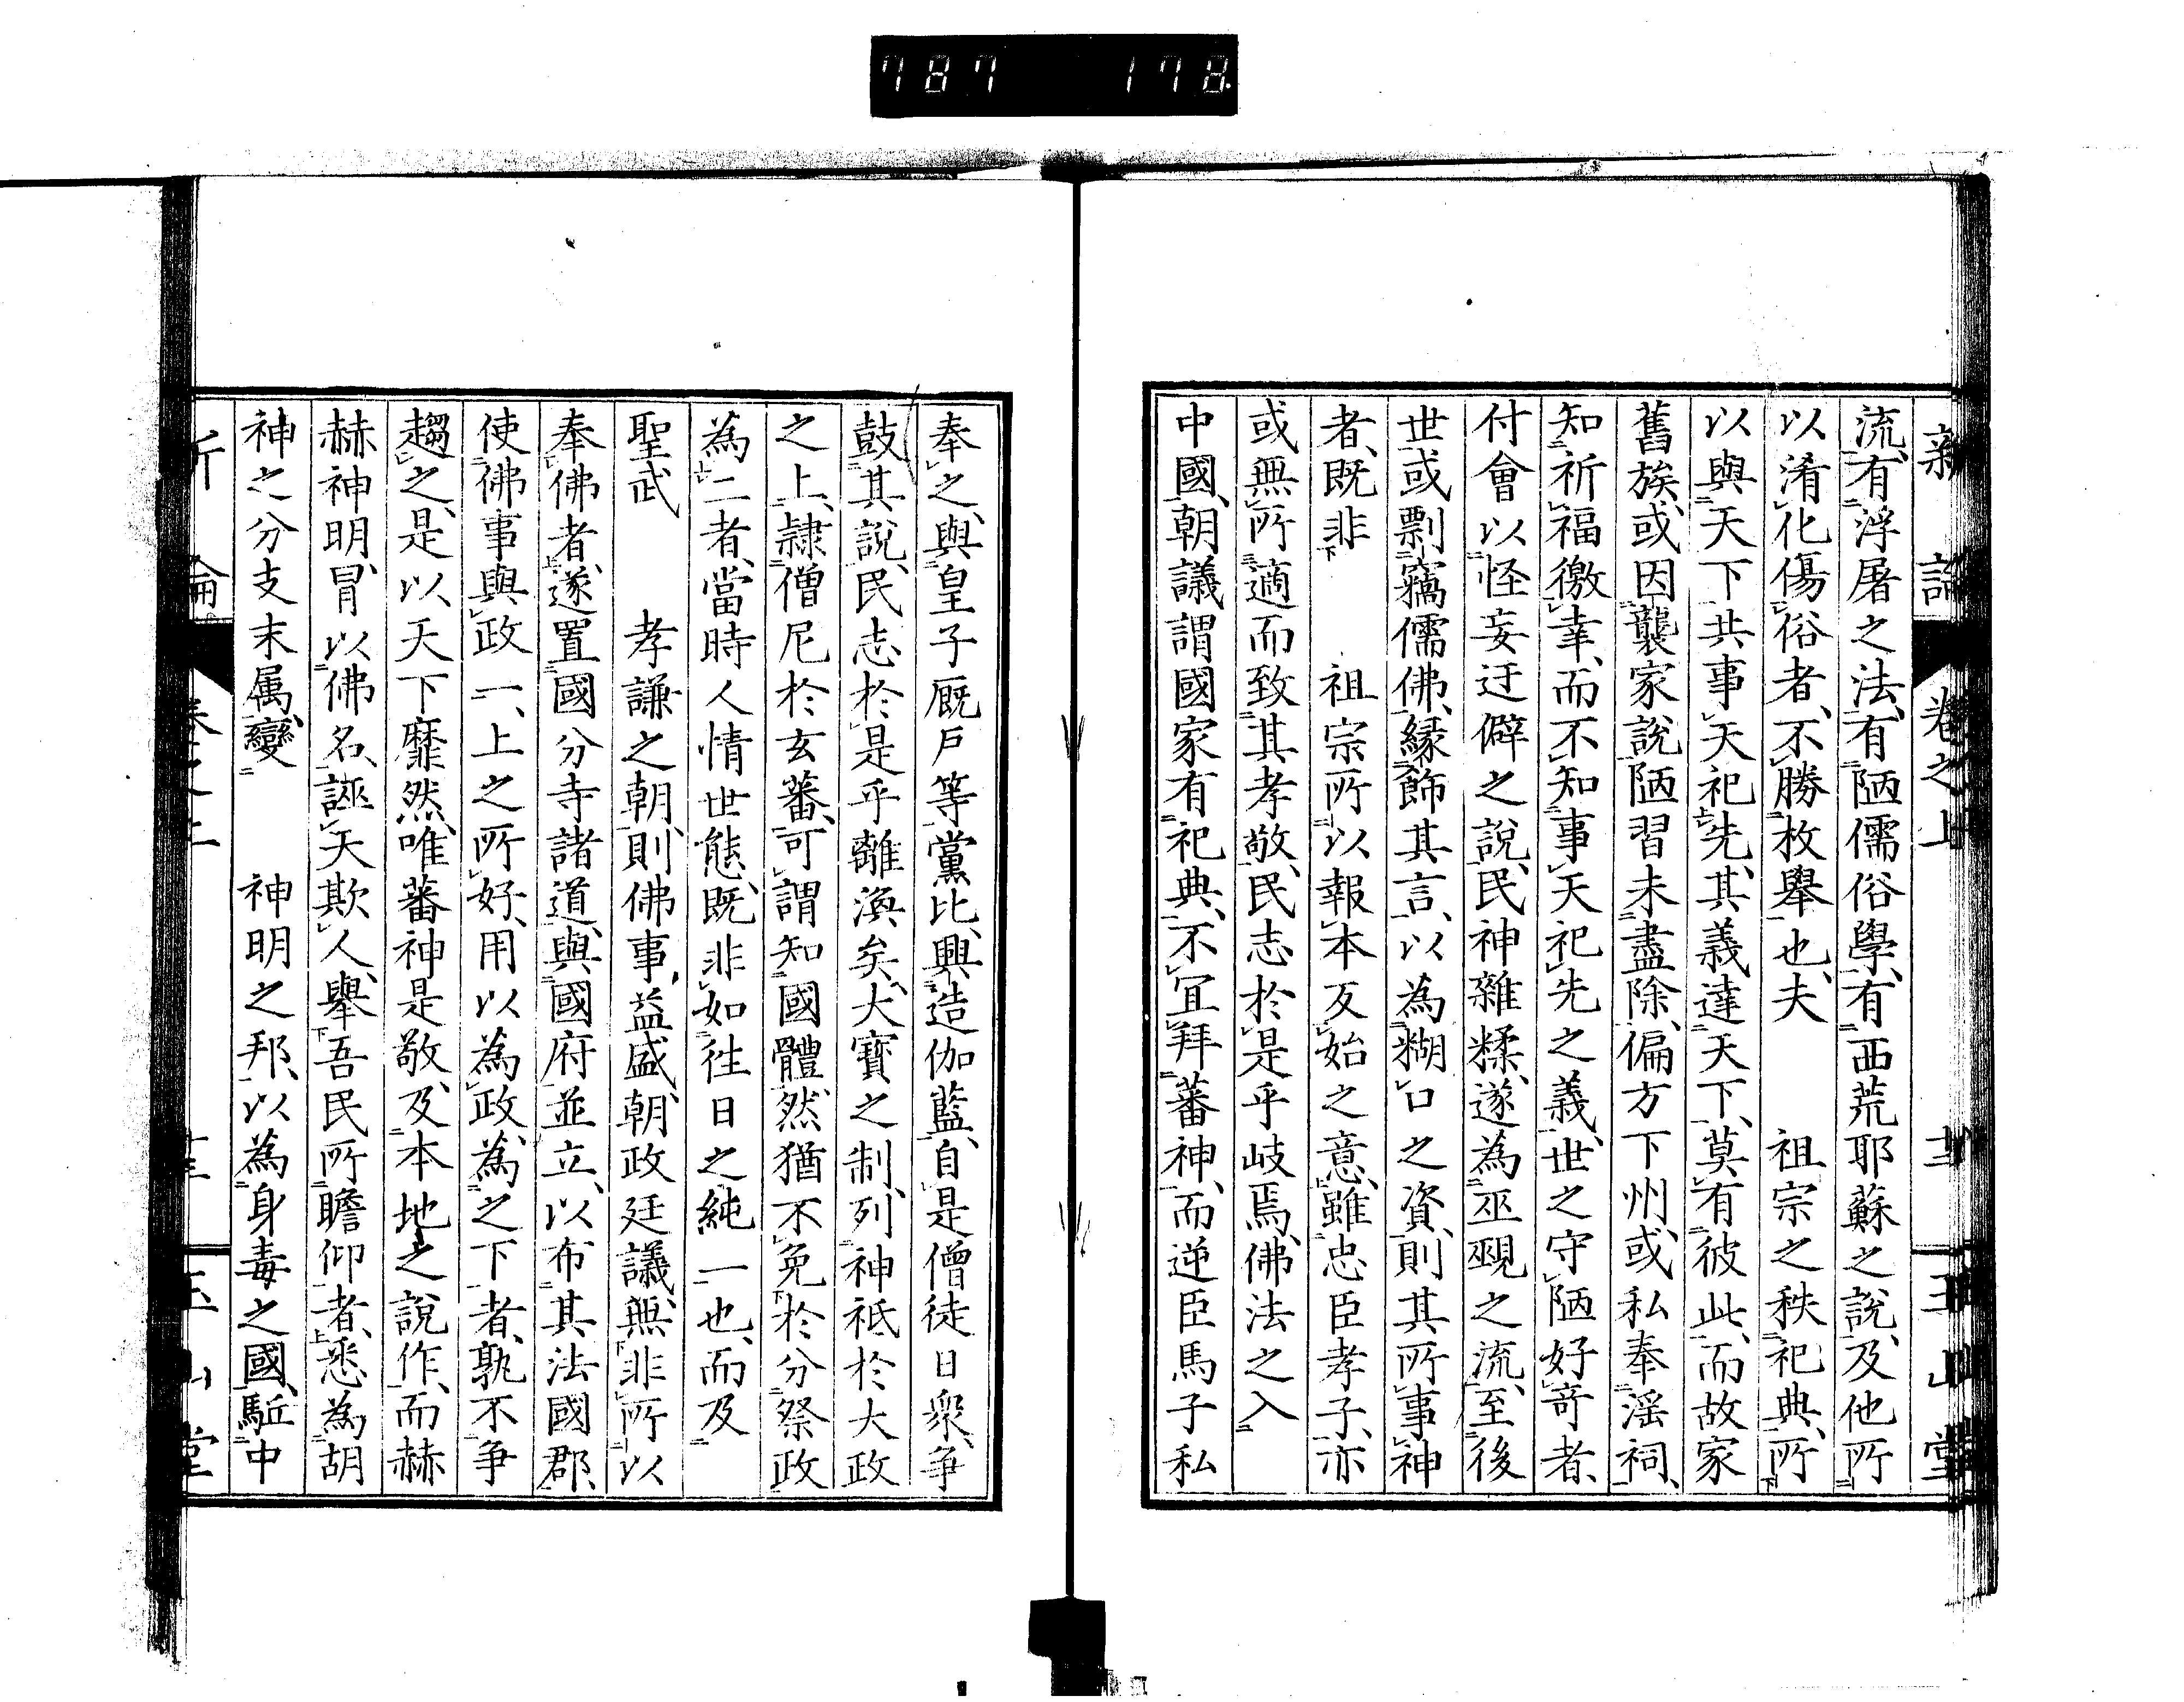 787 178
新論 卷之上 玉山堂
流、有浮屠之法、有陋儒俗學、有西荒耶蘇之說、及他所
以淆化傷俗者、不勝枚舉也、夫 祖宗之秩祀典、所
以與天下共事天祀先、其義達天下、莫有彼此、而故家
舊族、或因襲家說、陋習未盡除、偏方下州、或私奉淫祠、
知祈福徼幸、而不知事天祀先之義、世之守陋好奇者、
付會以怪妄迂僻之說、民神雜糅、遂為巫覡之流、至後
世、或剽竊儒佛、緣飾其言、以為糊口之資、則其所事神
者、既非 祖宗所以報本反始之意、雖忠臣孝子、亦
或無所適而致其孝敬、民志於是乎岐焉、佛法之入
中國、朝議謂國家有祀典、不宜拜蕃神、而逆臣馬子私
奉之、與皇子厩戶等黨比、興造伽藍、自是僧徒日衆、爭
鼓其說、民志於是乎離渙矣、大寶之制、列神祇於大政
之上、隸僧尼於玄蕃、可謂知國體、然猶不免於分祭政
為二者、當時人情世態、既非如往日之純一也、而及
聖武 孝謙之朝、則佛事益盛、朝政廷議、無非所以
奉佛者、遂置國分寺諸道、與國府並立、以布其法國郡、
使佛事與政一、上之所好、用以為政、為之下者、孰不爭
趨之、是以天下靡然、唯蕃神是敬、及本地之說作、而赫
赫神明、冒以佛名、誣天欺人、舉吾民所瞻仰者、悉為胡
神之分支末属、變 神明之邦、以為身毒之國、駈中